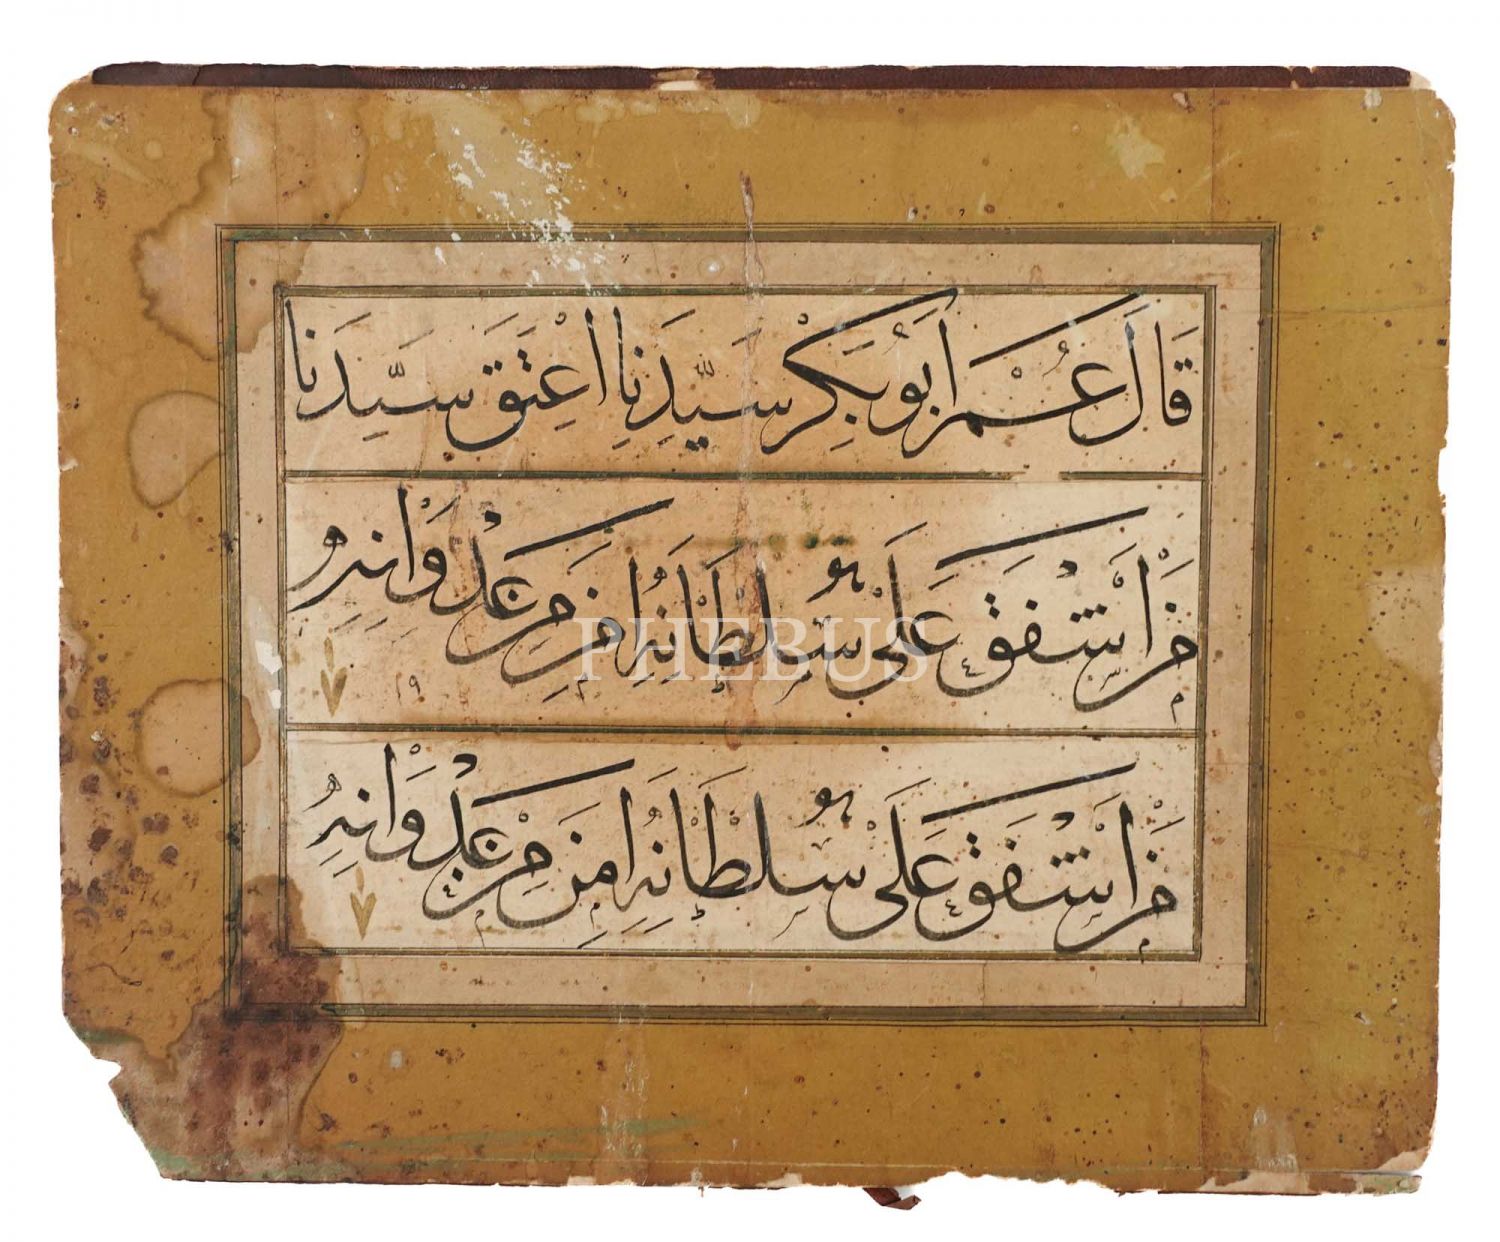 قَالَ عُمَر اَبُو بَكِرْ سَيِّدِنَا اعْتَقَ سَيِّدَنَا
مَنْ اَشْفَقَ عَلَى سُلْطَانِهِ اَمِنَ مِنْ عُدْوَانِهِ
PHEBUS
١٩
مَنْ اَشْفَقَ عَلَى سُلْطَانِهِ اَمِنَ مِنْ عُدْوَانِهِ